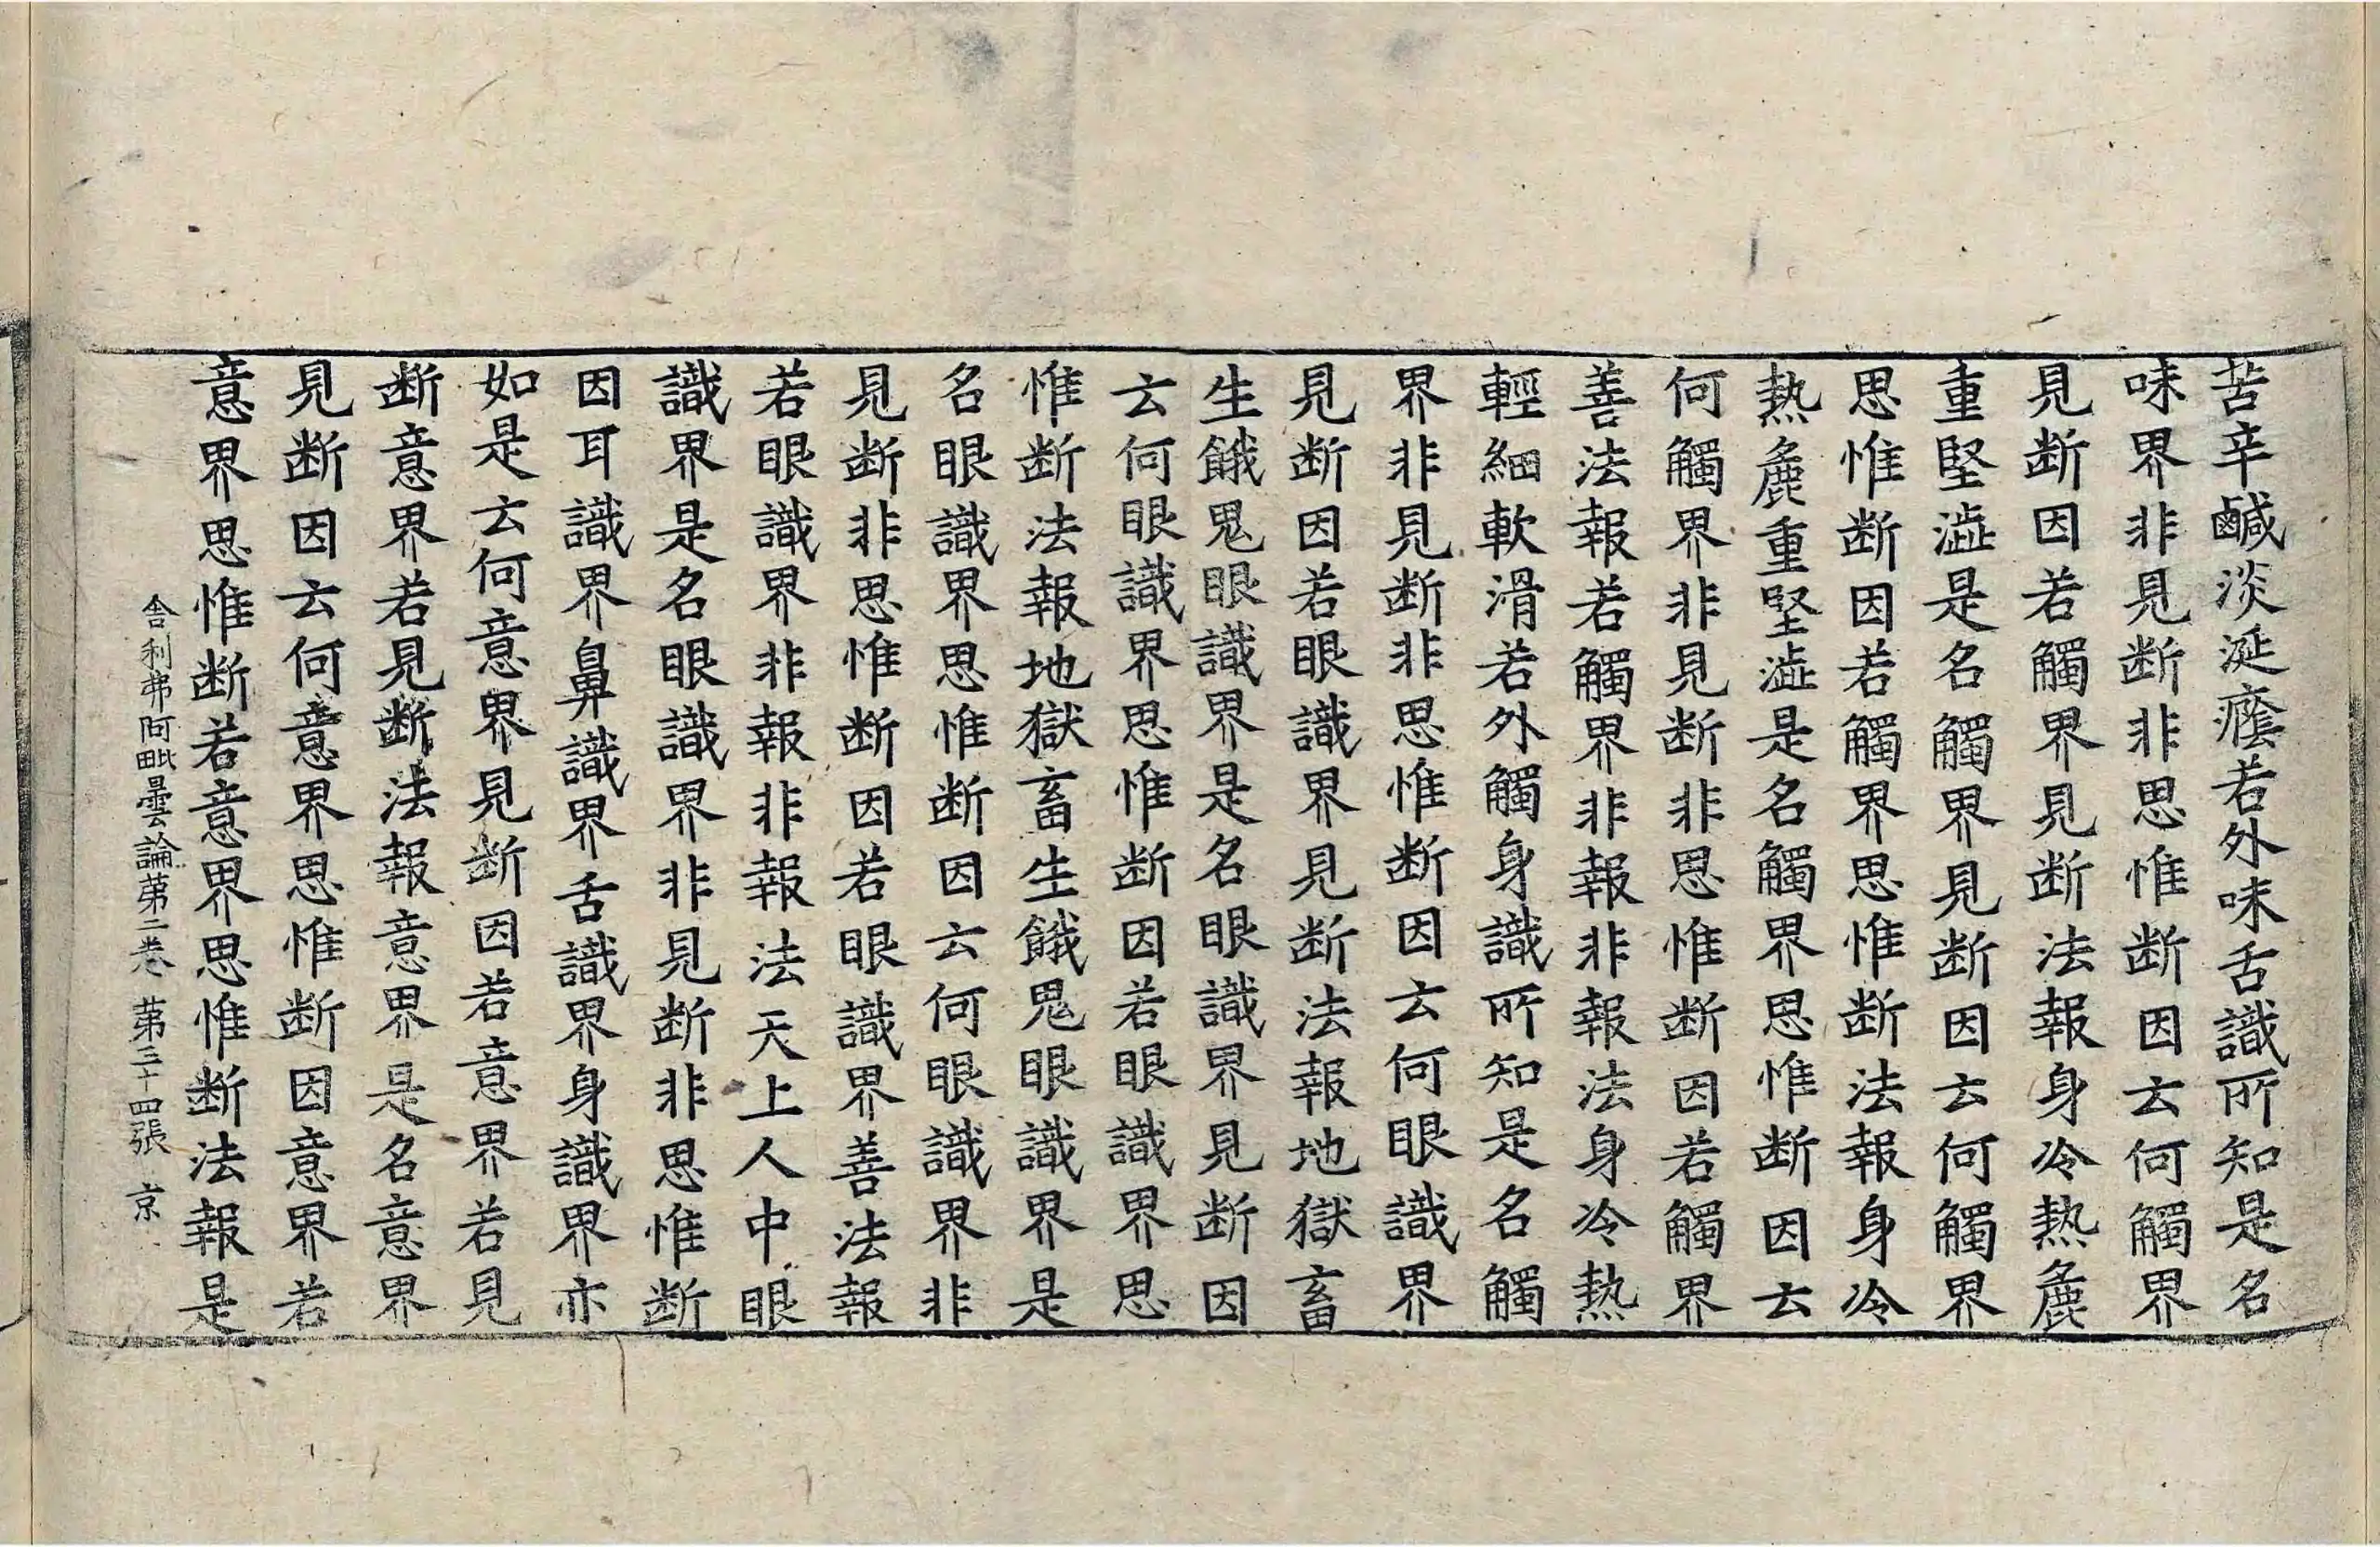 苦辛鹹淡涎癊若外味舌識所知是名
味界非見断非思惟断因云何觸界
見断因若觸界見断法報身冷熱麁
重堅澁是名觸界見断因云何觸界
思惟断因若觸界思惟断法報身冷
熱麁重堅澁是名觸界思惟断因云
何觸界非見断非思惟断因若觸界
善法報若觸界非報非報法身冷熱
輕細軟滑若外觸身識所知是名觸
界非見断非思惟断因云何眼識界
見断因若眼識界見断法報地獄畜
生餓鬼眼識界是名眼識界見断因
云何眼識界思惟断因若眼識界思
惟断法報地獄畜生餓鬼眼識界是
名眼識界思惟断因云何眼識界非
見断非思惟断因若眼識界善法報
若眼識界非報非報法天上人中眼
識界是名眼識界非見断非思惟断
因耳識界鼻識界舌識界身識界亦
如是云何意界見断因若意界若見
断意界若見断法報意界是名意界
見断因云何意界思惟断因意界若
意界思惟断若意界思惟断法報是
舎利弗阿毗曇論苐二卷 苐三十四張 京